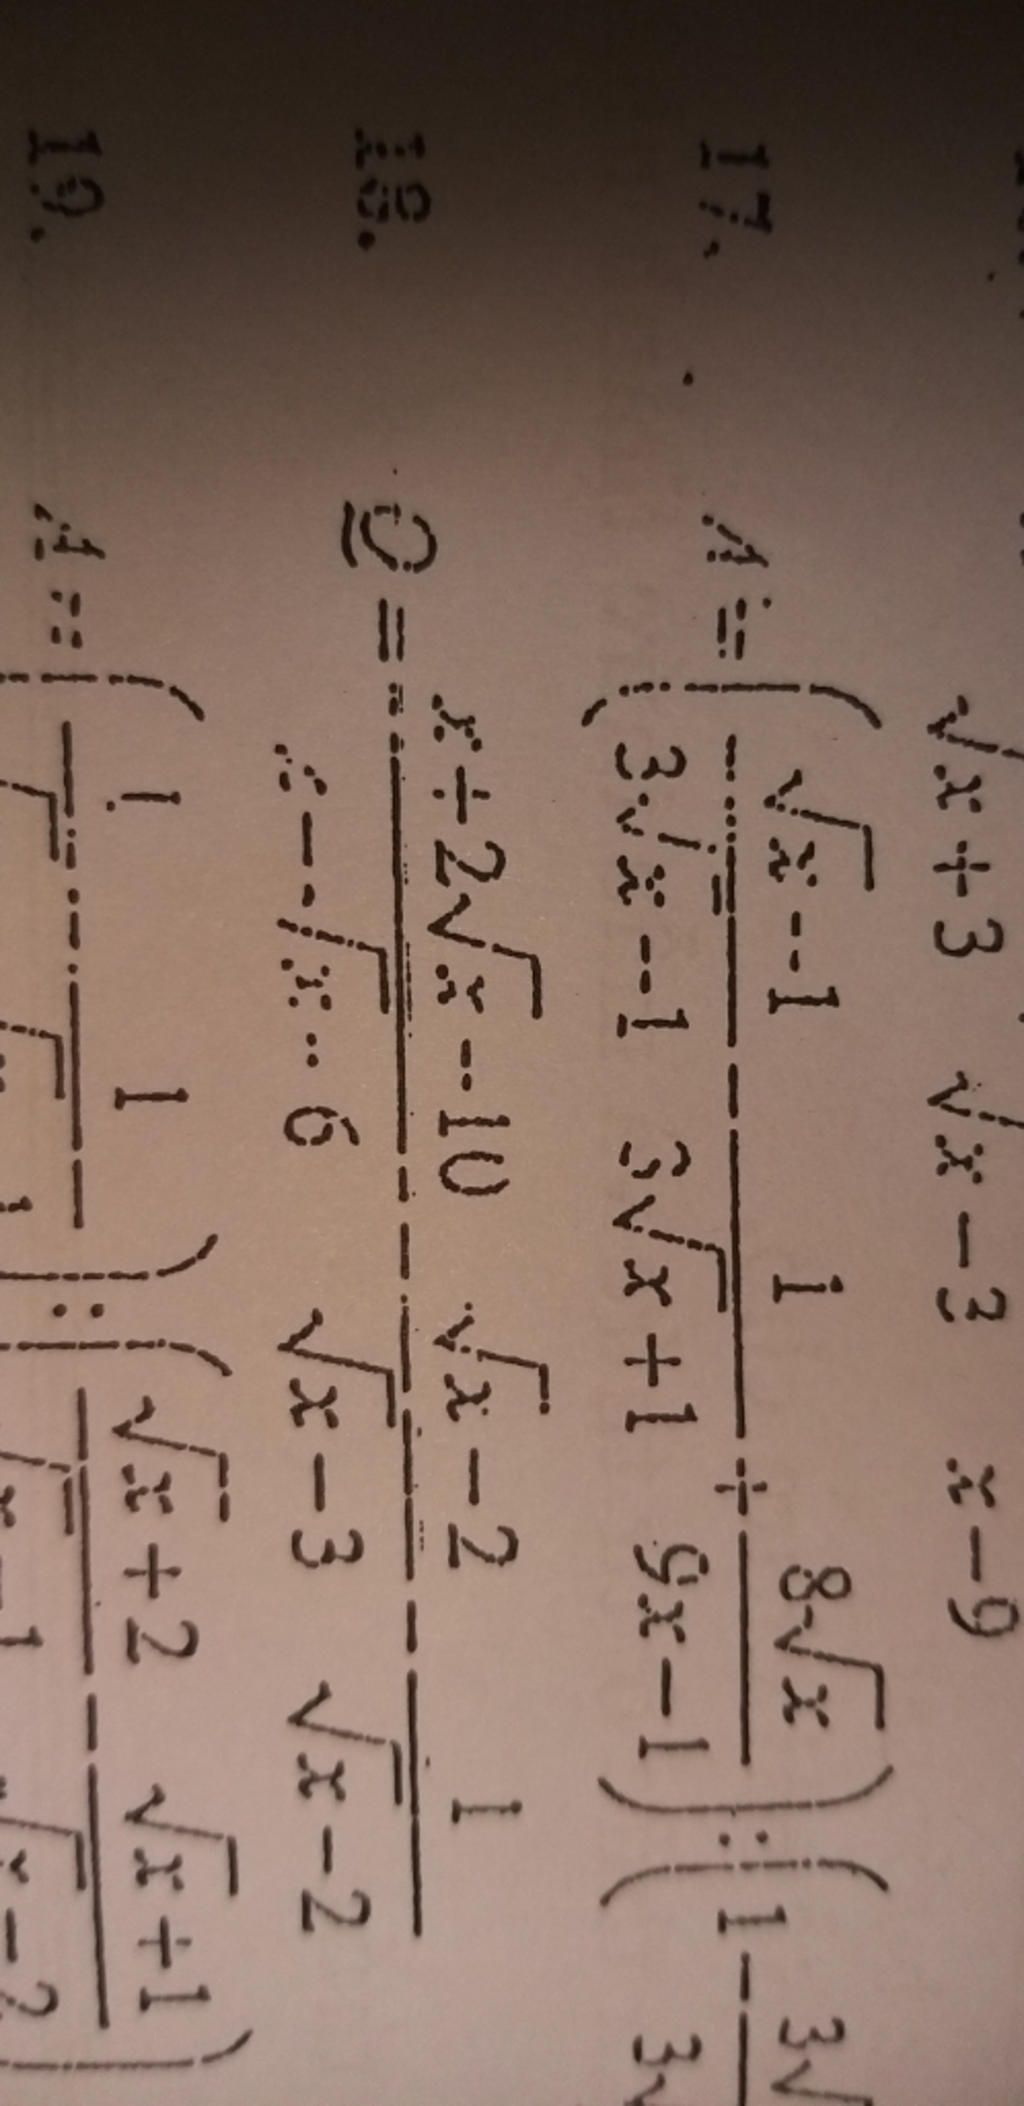 √x + 3 √x − 3 x − 9
17. A = ( (√x − 1)/(3√x − 1) − 1/(3√x + 1) + 8√x/(9x − 1) ) : ( 1 − 3√/3√
18. Q = (x + 2√x − 10)/(x − √x − 6) − (√x − 2)/(√x − 3) − 1/(√x − 2)
19. A = ( 1/√ − 1/√ ) : ( (√x + 2)/(√x − 1) − (√x + 1)/(√x − 2) )